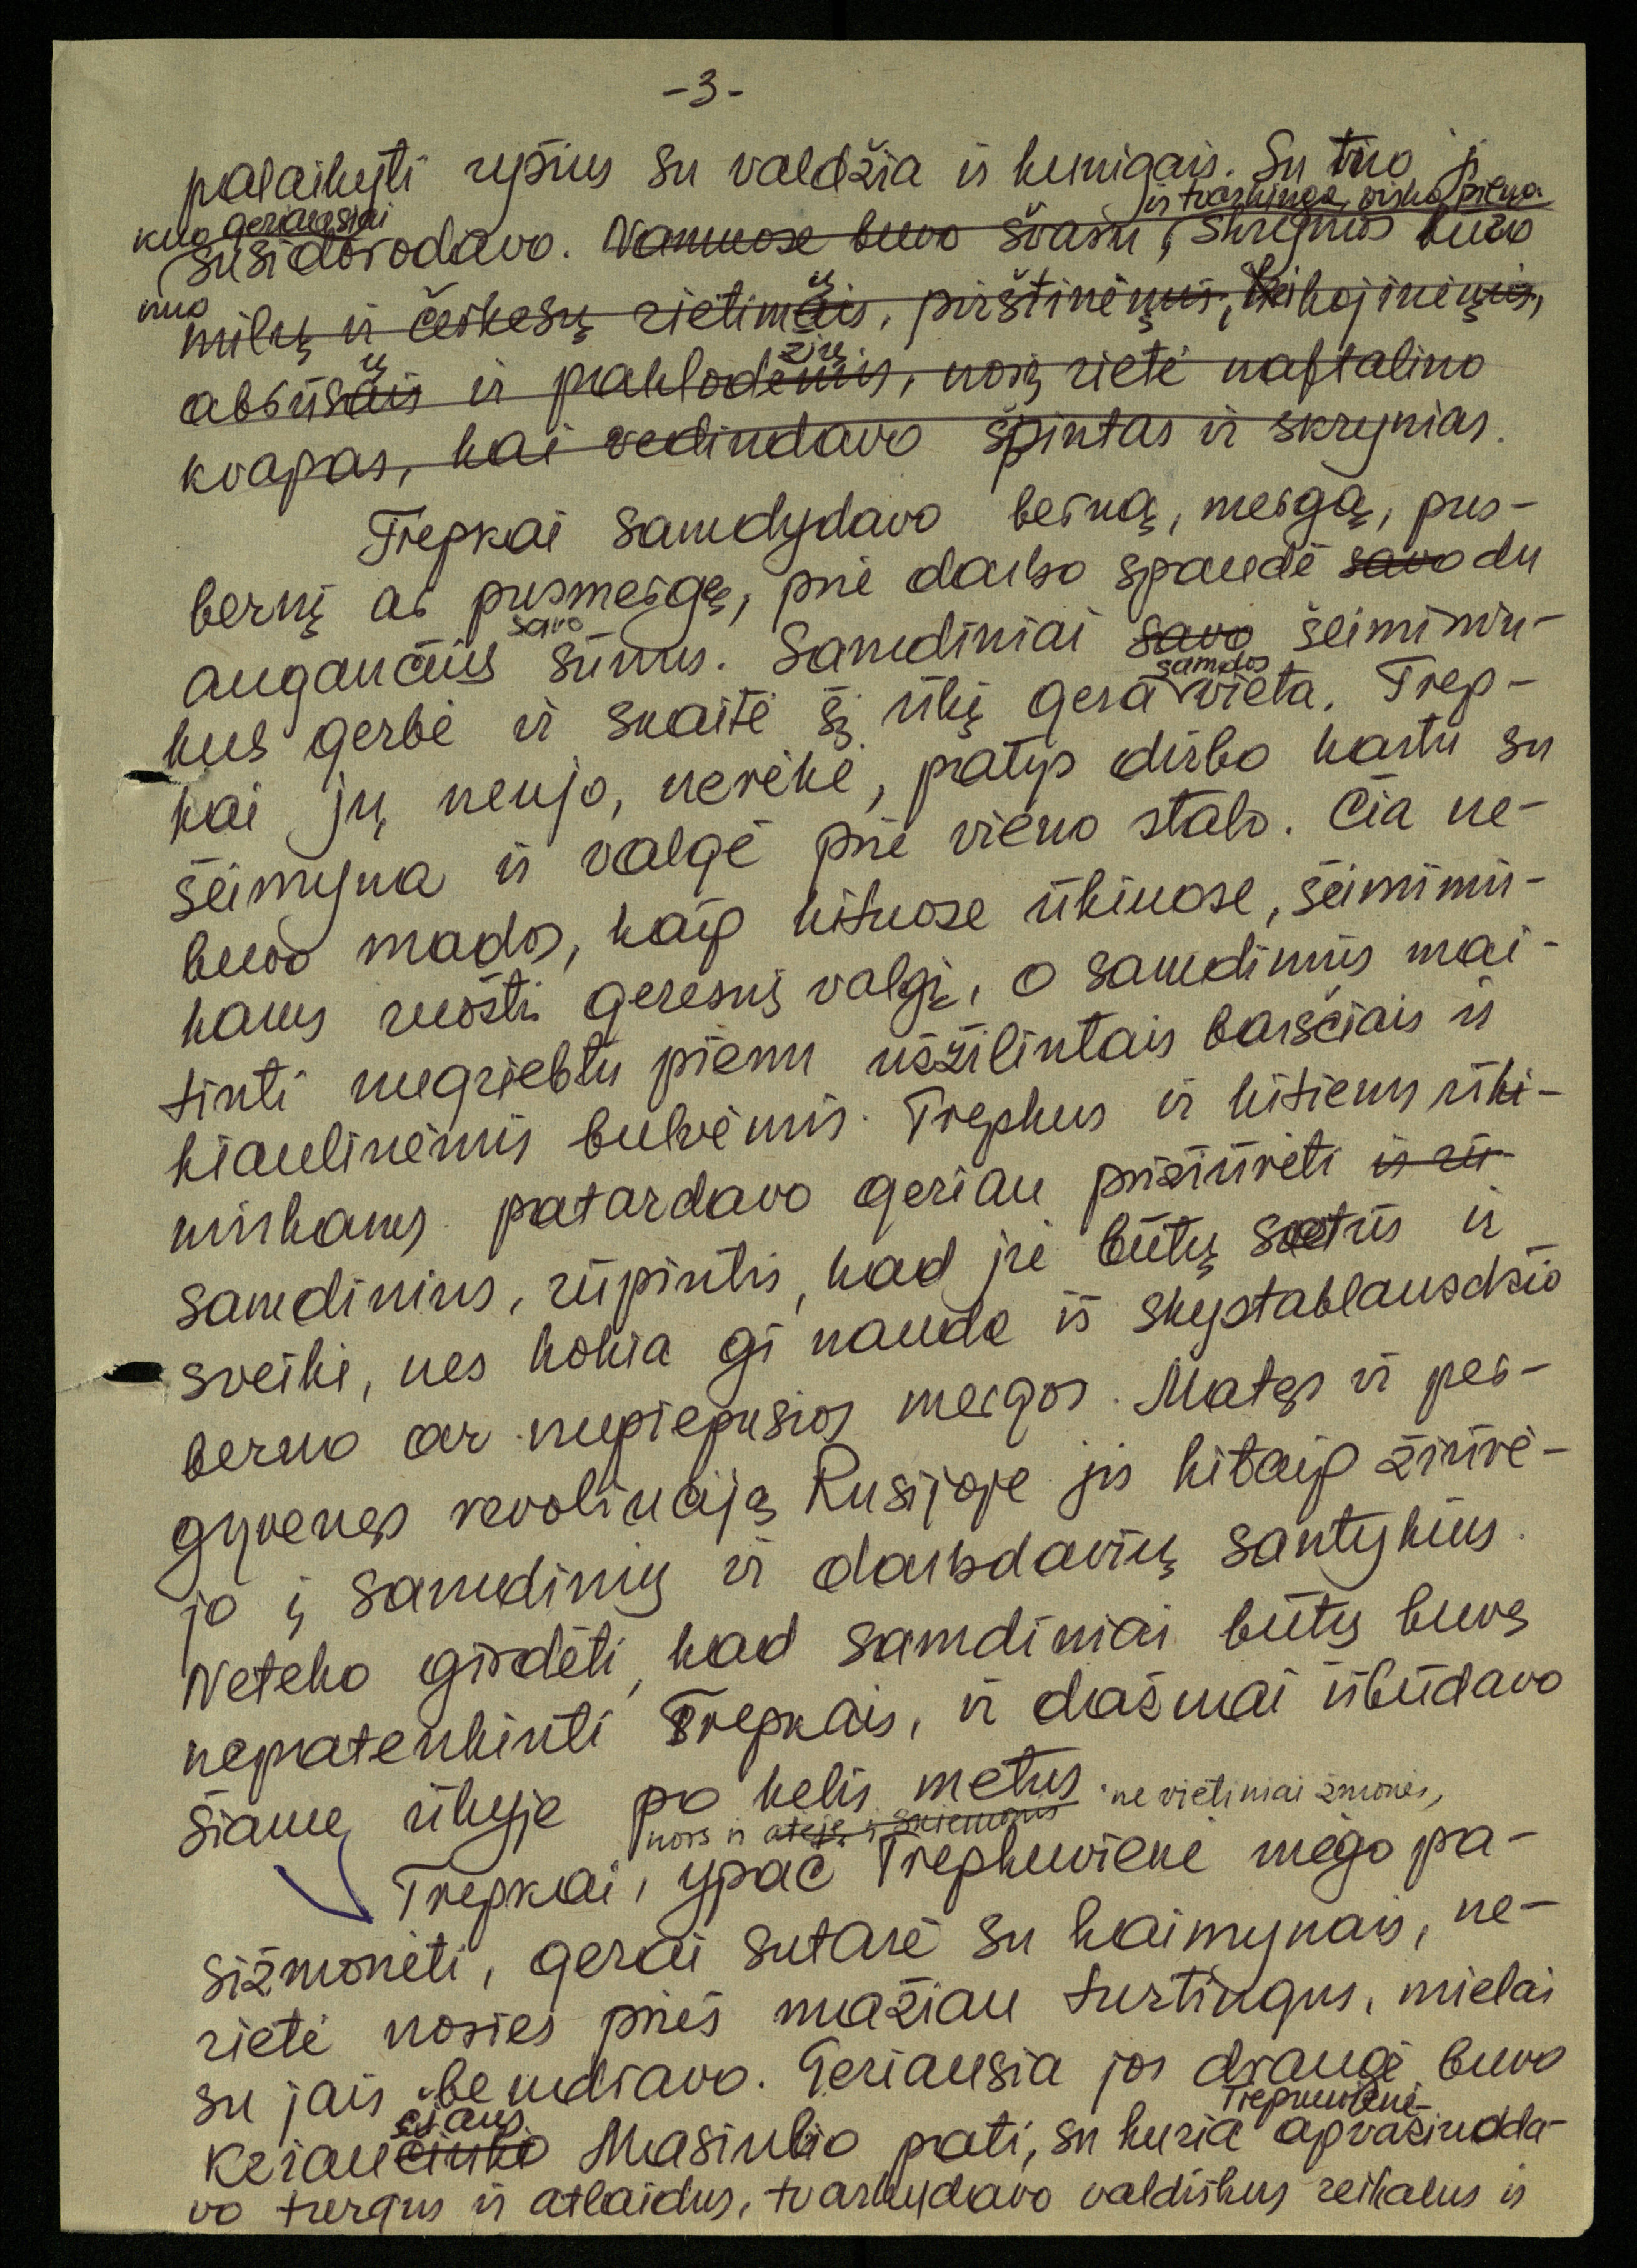 -3-
palaikyti ryšius su valdžia ir kunigais. Su tuo ji
kuo geriausiai ir tvarkinga, visko pilna
susidorodavo. Namuose buvo švaru, skrynios buvo
nuo
milų ir čerkesų rietimais, pirštinėmis, kojinėmis,
ų
abrūsais ir paklodėmis, nosį rietė naftalino
ų žių
kvapas, kai vėdindavo spintas ir skrynias.
Trepkai samdydavo berną, mergą, pus-
bernį ar pusmergę, prie darbo spaudė savo du
savo
augančius sūnus. Samdiniai savo šeiminin-
samdos
kus gerbė ir skaitė šį ūkį gera vieta. Trep-
kai jų neujo, nerėkė, patys dirbo kartu su
šeimyna ir valgė prie vieno stalo. Čia ne-
buvo mados, kaip kituose ūkiuose, šeiminin-
kams ruošti geresnį valgį, o samdinius mai-
tinti nugriebtu pienu užžilintais barščiais ir
kiaulinėmis bulvėmis. Trepkus ir kitiems ūki-
ninkams patardavo geriau prižiūrėti ir rū-
samdinius, rūpintis, kad jie būtų sotūs ir
sveiki, nes kokia gi nauda iš skystablauzdžio
berno ar nupiepusios mergos. Matęs ir per-
gyvenęs revoliuciją Rusijoje jis kitaip žiūrė-
jo į samdinių ir darbdavių santykius.
Neteko girdėti, kad samdiniai būtų buvę
nepatenkinti Trepkais, ir dažnai išbūdavo
šiame ūkyje po kelis metus.
nors ir atėję į ne vietiniai žmonės,
Trepkai, ypač Trepkuvienė mėgo pa-
sižmonėti, gerai sutarė su kaimynais, ne-
rietė nosies prieš mažiau turtingus, mielai
su jais bendravo. Geriausia jos draugė buvo
čiaus Trepkuvienė
Kriaučiuko Masiulio pati, su kuria apvažiuoda-
vo turgus ir atlaidus, tvarkydavo valdiškus reikalus ir